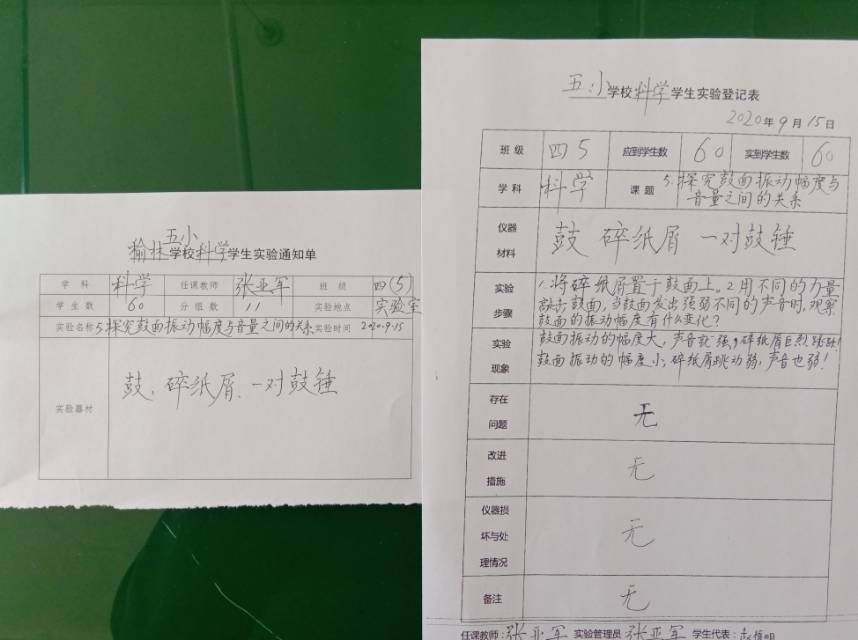 榆林五小学校科学学生实验通知单
学科 科学 任课教师 张亚军 班级 四(5)
学生数 60 分组数 11 实验地点 实验室
实验名称 5.探究鼓面振动幅度与音量之间的关系 实验时间 2020.9.15
实验器材 鼓、碎纸屑、一对鼓锤
五小学校科学学生实验登记表
2020年9月15日
班级 四5 应到学生数 60 实到学生数 60
学科 科学 课题 5.探究鼓面振动幅度与
音量之间的关系
仪器
材料
鼓 碎纸屑 一对鼓锤
实验
步骤
1.将碎纸屑置于鼓面上。2.用不同的力量
敲击鼓面,当鼓面发出强弱不同的声音时,观察
鼓面的振动幅度有什么变化?
实验
现象
鼓面振动的幅度大,声音就强,碎纸屑
鼓面振动的幅度小,碎纸屑跳动弱,声音也弱!
存在
问题
无
改进
措施
无
仪器损
坏与处
理情况
无
备注 无
任课教师:张亚军 实验管理员:张亚军 学生代表: